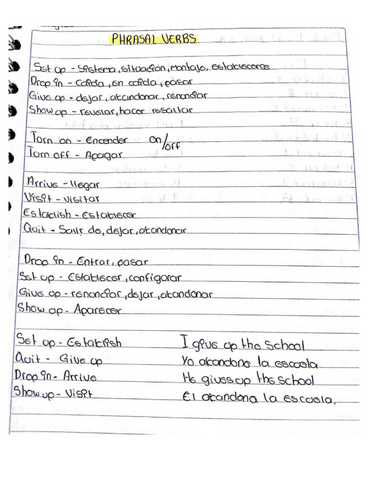 PHRASAL VERBS
Set up - Sistema, situación, montaje, establecerse
Drop in - Caída, en caída, pasar
Give up - dejar, abandonar, renunciar
Show up - revelar, hacer resaltar
Turn on - Encender on/off
Turn off - Apagar
Arrive - llegar
Visit - visitar
Establish - Establecer
Quit - Salir de, dejar, abandonar
Drop in - Entrar, pasar
Set up - Establecer, configurar
Give up - renunciar, dejar, abandonar
Show up - Aparecer
Set up - Establish I give up the school
Quit - Give up Yo abandono la escuela
Drop in - Arrive He gives up the school
Show up - Visit El abandona la escuela.